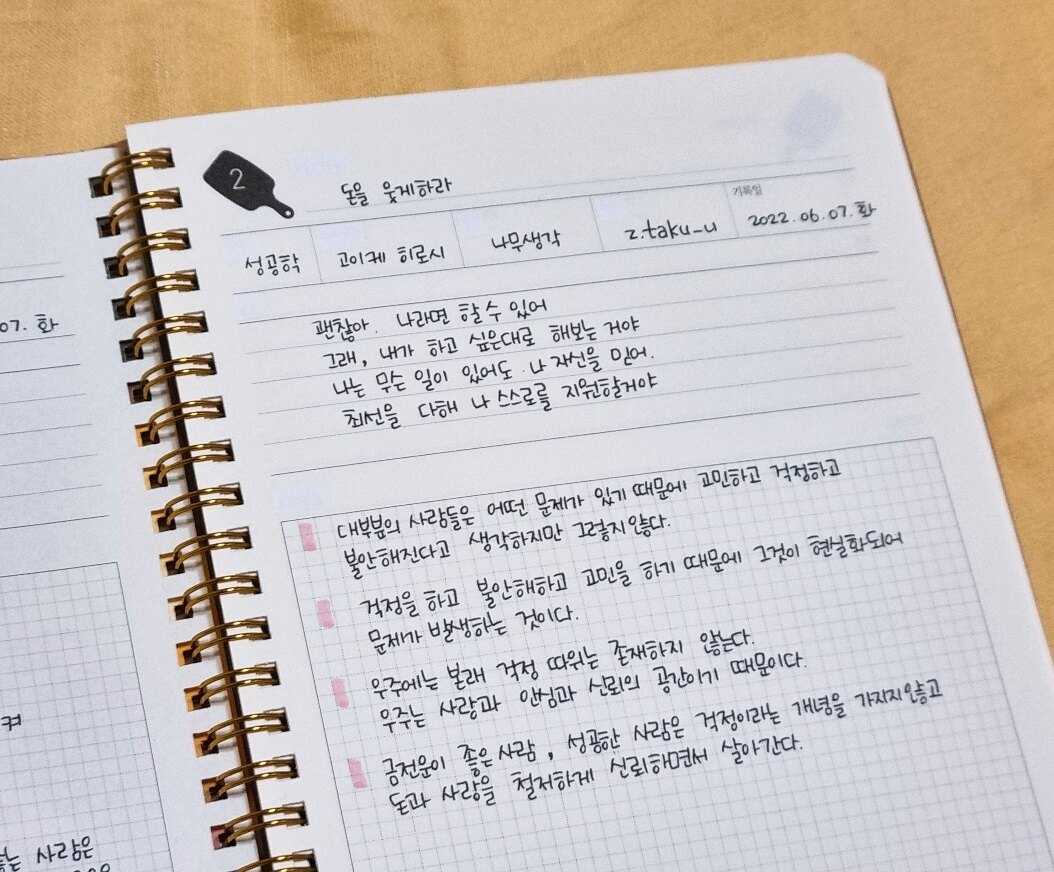 2
돈을 웃게하라
기록일
성공학
고이케 히로시
나무생각
z.taku_u
2022.06.07.화
괜찮아. 나라면 할 수 있어
그래, 내가 하고 싶은대로 해보는 거야
나는 무슨 일이 있어도 나 자신을 믿어.
최선을 다해 나 스스로를 지원할거야
대부분의 사람들은 어떤 문제가 있기 때문에 고민하고 걱정하고
불안해진다고 생각하지만 그렇지않다.
걱정을 하고 불안해하고 고민을 하기 때문에 그것이 현실화되어
문제가 발생하는 것이다.
우주에는 본래 걱정 따위는 존재하지 않는다.
우주는 사랑과 안심과 신뢰의 공간이기 때문이다.
금전운이 좋은사람, 성공한 사람은 걱정이라는 개념을 가지지않고
돈과 사랑을 철저하게 신뢰하면서 살아간다.
07. 화
켜
는 사람은